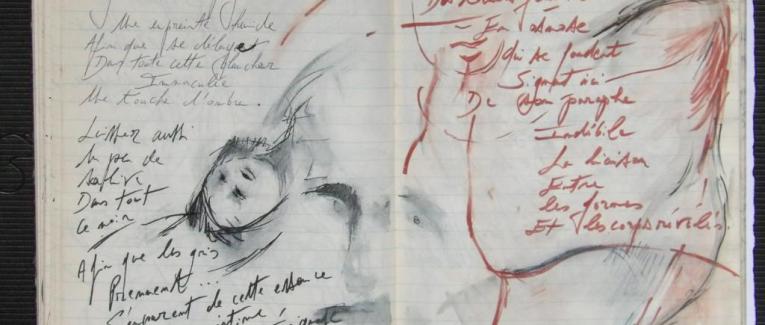 Une empreinte humide
Afin que se délaye
Dans toute cette blancheur
Immaculée
Une touche d'ombre.
Laisser aussi
Un peu de
Dans tout
Ce noir
Afin que les gris
Prennent...
S'emparent de cette essence
intime !
En
qui se fondent
Signant ici
De son paraphe
Indélébile
La liaison
Entre
les formes
Et les corps révélés.